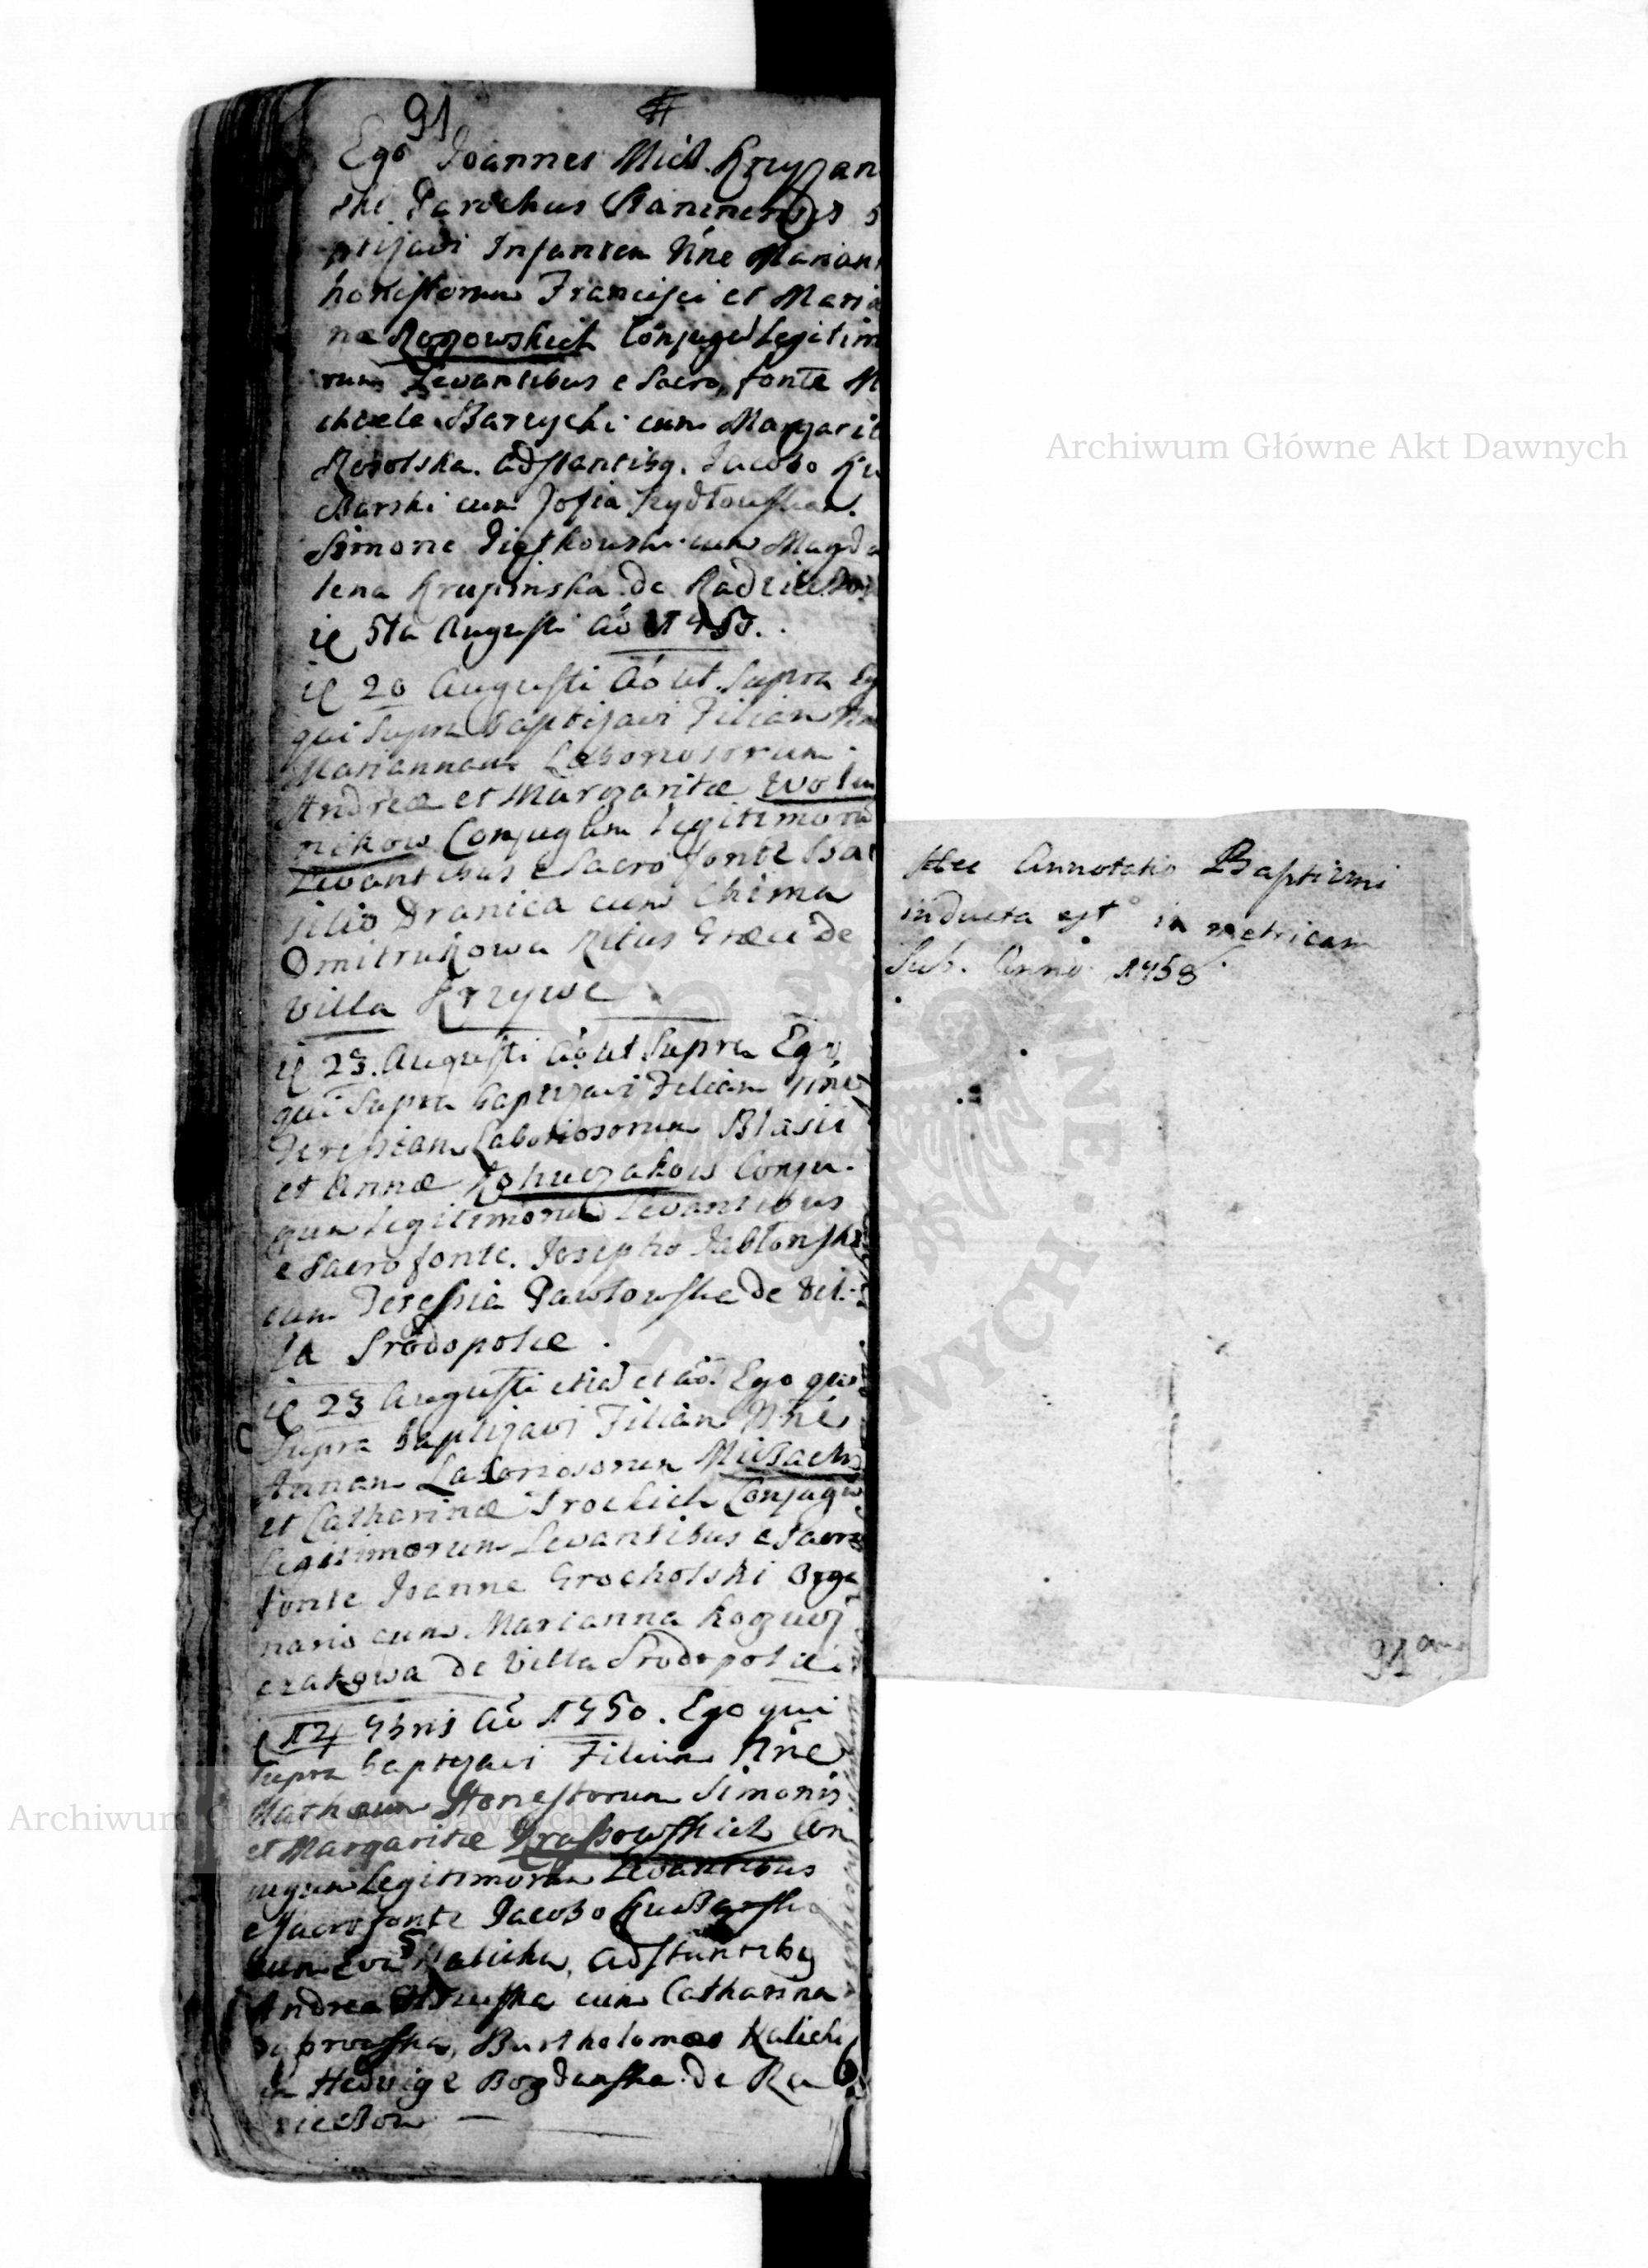 91 #
Ego Joannes Mich. Krzyzan
ski Parochus Staninensis b
ptizavi Infantem Nne Mariann
honestorum Francisci et Maria
næ Rozowskich Conjugu Legitimo
rum Levantibus e Sacro fonte Mi
chaele Barzycki cum Margarit
adstantibq. Jacobo Ku
Barski cum Zofia
Simone cum Magda
lena Krupinska de
ie 5ta Augusti Ao 1750.
ie 20 Augusti Ao ut Supra Eg
qui Supra baptizavi Filiam Nne
Mariannam Laboriosorum
Andreæ et Margaritæ Wolin
nikow Conjugum Legitimoru
Levantibus e Sacro fonte Ba
silio Dranica cum Chima
Dmitrukowa Ritus Græci de
Villa Krzywe
ie 23. Augusti Ao ut Supra Ego
qui Supra baptizavi Filiam Nne
Teressiam Laboriosorum Blasii
et Annæ Conju
gum Legitimorum Levantibus
e Sacro fonte. Josepho Jabłonski
cum Teressia Pawłowska de Vil
la Srodopolce.
ie 23 Augusti et Ao. Ego qui
Supra baptizavi Filiam Nne
Annam Laboriosorum Michaelis
et Catharinæ Trockich Conjugu
Legitimorum Levantibus e Sacro
fonte Joanne Grocholski Orga
nario cum Marianna Koguy
czakowa de Villa Srodopolce
14 9bris Ao 1750. Ego qui
Supra baptizavi Filium Nne
Mathæum Honestorum Simonis
et Margaritæ Krassowskich Con
jugum Legitimorum Levantibus
e Sacro fonte Jacobo KuBarski
cum Eva Kalicka, adstantibq
Andrea cum Catharina
Bartholomæo Kalicki
Hedvige Bogdanska de Ra
Hæc Annotatio Baptismi
inducta est in metricam
Sub. Anno 1758.
91
Archiwum Główne Akt Dawnych
Archiwum Główne Akt Dawnych